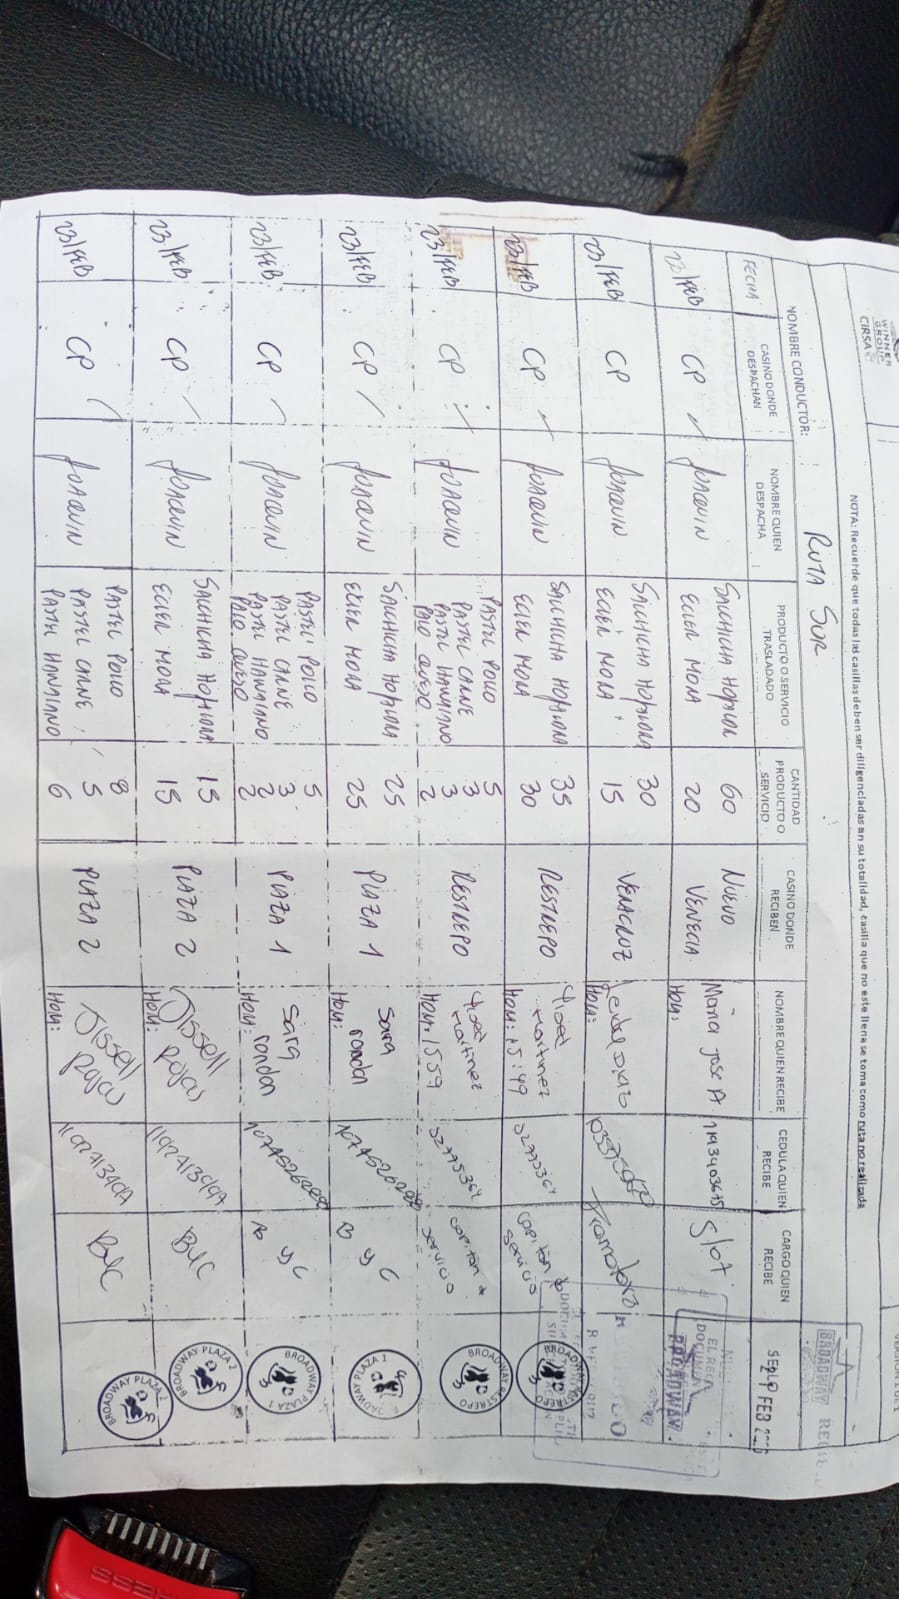 WINNER
GROUP
CIRSA
NOTA: Recuerde que todas las casillas deben ser diligenciadas en su totalidad, casilla que no este llena se toma como ruta no realizada
RUTA SUR
NOMBRE CONDUCTOR:
FECHA:
CASINO DONDE DESPACHAN
NOMBRE QUIEN DESPACHA
PRODUCTO O SERVICIO TRASLADADO
CANTIDAD PRODUCTO O SERVICIO
CASINO DONDE RECIBEN
NOMBRE QUIEN RECIBE
CEDULA QUIEN RECIBE
CARGO QUIEN RECIBE
BROADWAY
FEB
23/FEB CP JOAQUIN SALCHICHA 60 NUEVO Maria Jose A Slot
ECLER MORA 20 VENECIA
HORA:
BROADWAY
23/FEB CP JOAQUIN SALCHICHA 30 VERACRUZ
ECLER MORA 15
HORA:
23/FEB CP JOAQUIN SALCHICHA 35 RESTREPO Martinez 52775364 capitan de servicio
ECLER MORA 30
HORA: 15:49
23/FEB CP JOAQUIN PASTEL POLLO 5 RESTREPO Martinez 52775364 capitan de servicio
PASTEL CARNE 3
PASTEL HAWAIANO 3
PALO QUESO 2
HORA: 15 59
BROADWAY RESTREPO
23/FEB CP JOAQUIN SALCHICHA 25 PLAZA 1 Sara rondon A y C
ECLER MORA 25
HORA:
BROADWAY PLAZA 1
23/FEB CP JOAQUIN PASTEL POLLO 5 PLAZA 1 Sara rondon A y C
PASTEL CARNE 3
PASTEL HAWAIANO 2
PALO QUESO 2
HORA:
BROADWAY PLAZA 1
23/FEB CP JOAQUIN SALCHICHA 15 PLAZA 2 Jissell rojas ByC
ECLER MORA 15
HORA:
BROADWAY PLAZA 2
23/FEB CP JOAQUIN PASTEL POLLO 8 PLAZA 2 Jissell rojas ByC
PASTEL CARNE 5
PASTEL HAWAIANO 6
HORA:
BROADWAY PLAZA 2